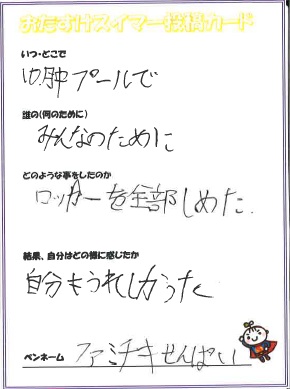 おたすけスイマー投稿カード
いつ・どこで
プールで
誰の(何のために)
みんなのために
どのような事をしたのか
ロッカーを全部しめた.
結果、自分はどの様に感じたか
自分もうれしかった
ペンネーム ファミチキせんぱい